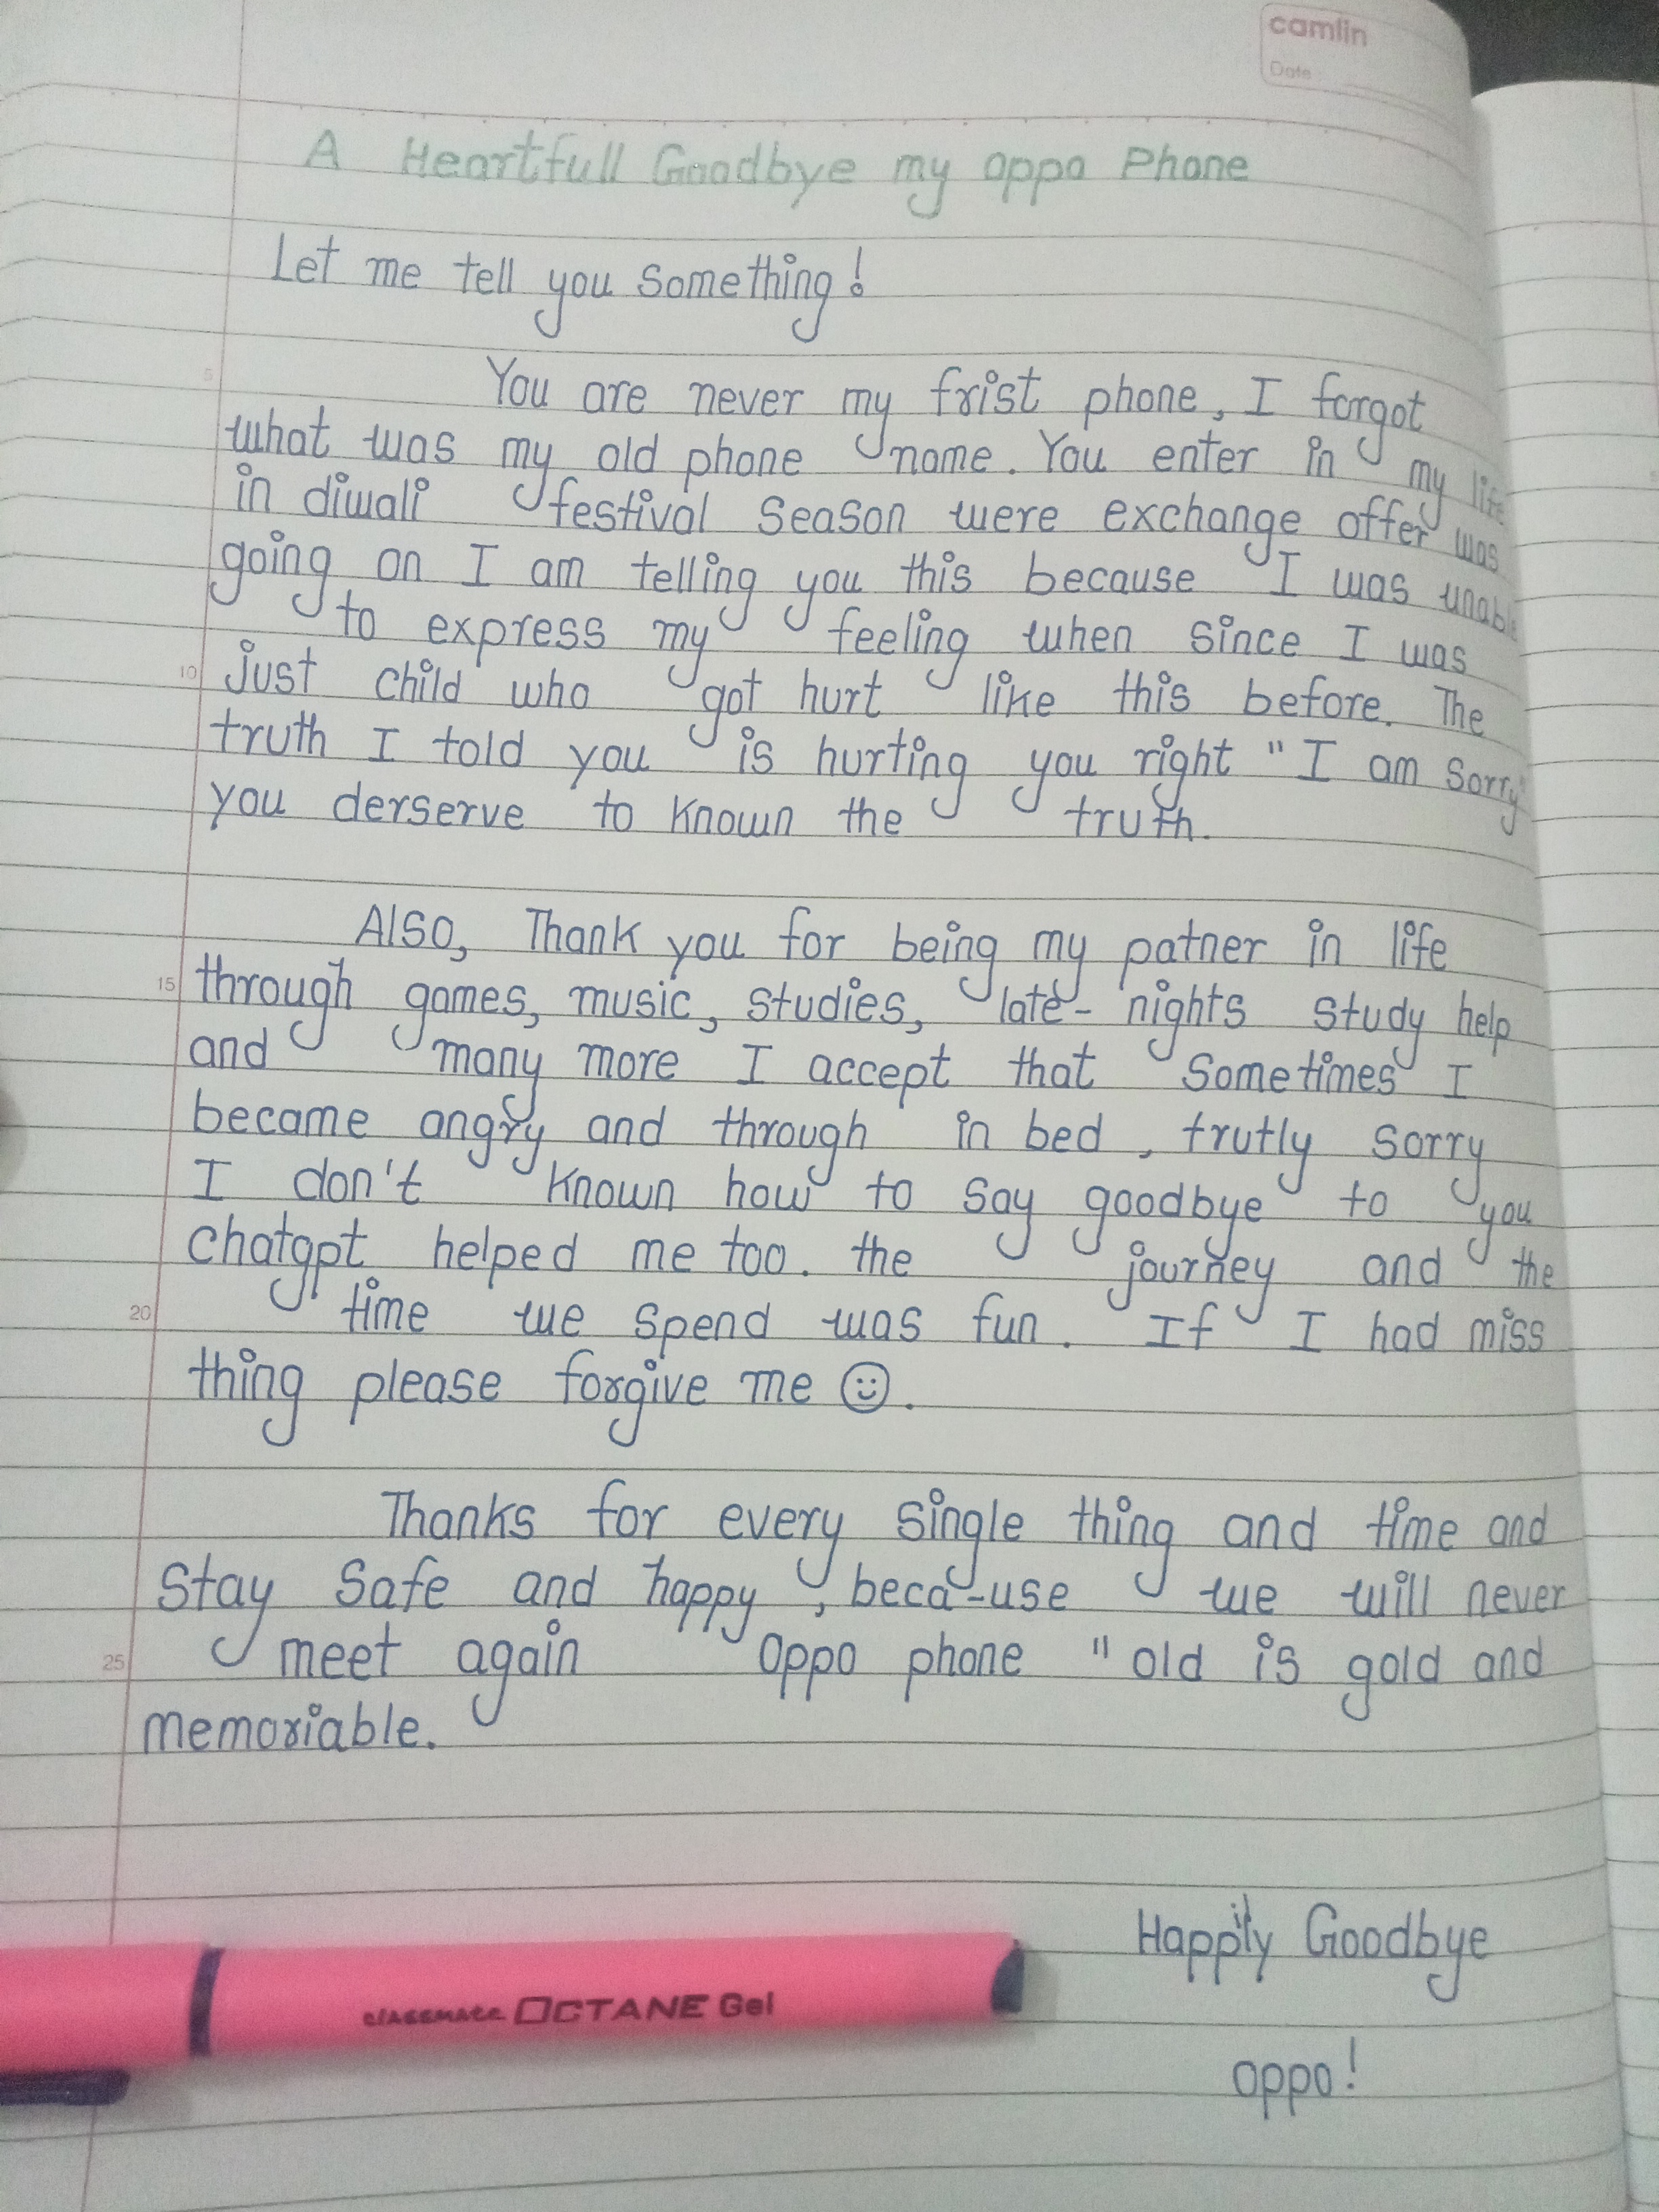 camlin
Date
A Heartfull Goodbye my oppo Phone
Let me tell you something!
5
You are never my frist phone, I forgot
what was my old phone name. You enter in my life
in diwali festival season were exchange offer was
going on I am telling you this because I was unable
to express my feeling when since I was
10 just child who got hurt like this before. The
truth I told you is hurting you right "I am sorry"
you derserve to known the truth.
Also, Thank you for being my patner in life
15 through games, music, studies, late- nights study help
and many more I accept that sometimes I
became angry and through in bed, trutly sorry
I don't known how to say goodbye to you
chatgpt helped me too. the journey and the
20 time we spend was fun. If I had miss
thing please forgive me ☺.
Thanks for every single thing and time and
stay safe and happy, beca-use we will never
25 meet again oppo phone "old is gold and
memoriable.
Happily Goodbye
oppo!
classmate OCTANE Gel